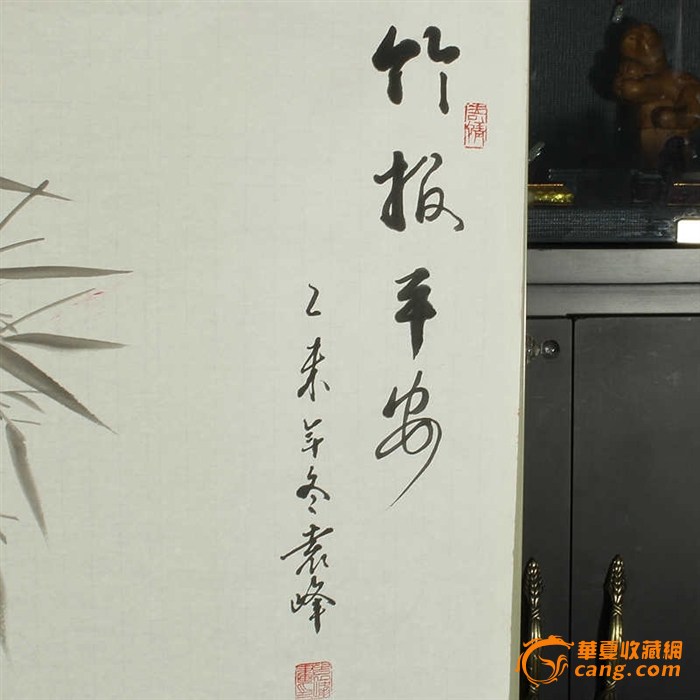 竹报平安
乙未年冬袁峰
華夏收藏網
cang.com